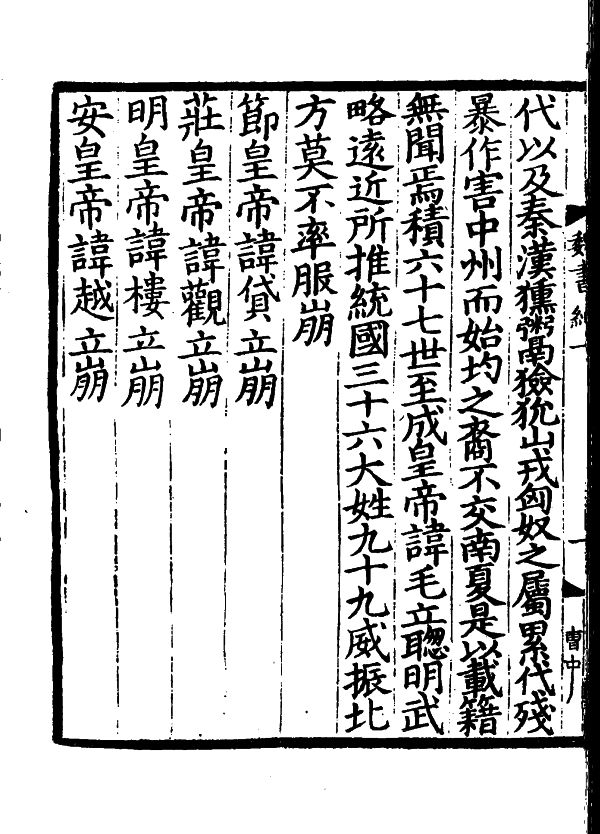 魏書紀一
一
曹中
代以及秦漢獯鬻獫狁山戎匈奴之屬累代殘
暴作害中州而始均之裔不交南夏是以載籍
無聞焉積六十七世至成皇帝諱毛立聰明武
略遠近所推統國三十六大姓九十九威振北
方莫不率服崩
節皇帝諱貸立崩
莊皇帝諱觀立崩
明皇帝諱樓立崩
安皇帝諱越立崩